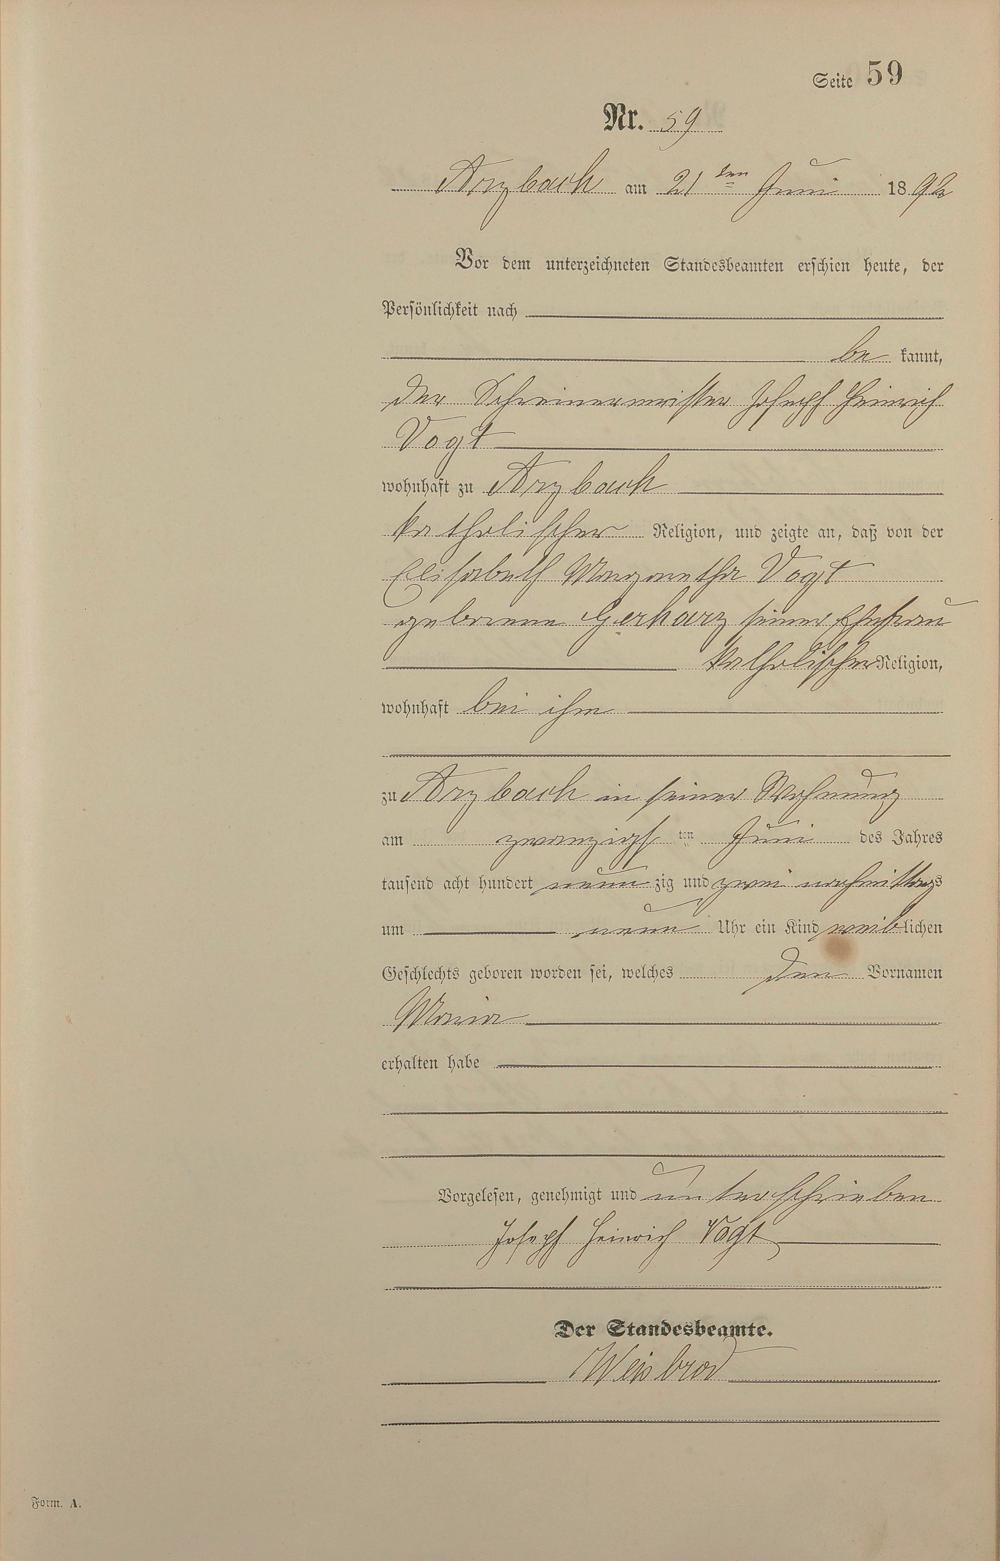 Seite 59
Nr. 59
Arzbach am 21 ten Juni 1892
Vor dem unterzeichneten Standesbeamten erschien heute, der
Persönlichkeit nach
be kannt,
der Schreinermeister Joseph Heinrich
Vogt
wohnhaft zu Arzbach
katholischer Religion, und zeigte an, daß von der
Elisabeth Margaretha Vogt
geborene Gerharz seiner Ehefrau
katholischer Religion,
wohnhaft bei ihm
zu Arzbach in seiner Wohnung
am zwanzigs ten Juni des Jahres
tausend acht hundert neun zig und zwei nachmittags
um neun Uhr ein Kind weib lichen
Geschlechts geboren worden sei, welches den Vornamen
Maria
erhalten habe
Vorgelesen, genehmigt und unterschrieben
Joseph Heinrich Vogt
Der Standesbeamte.
Weisbrod
Form. A.